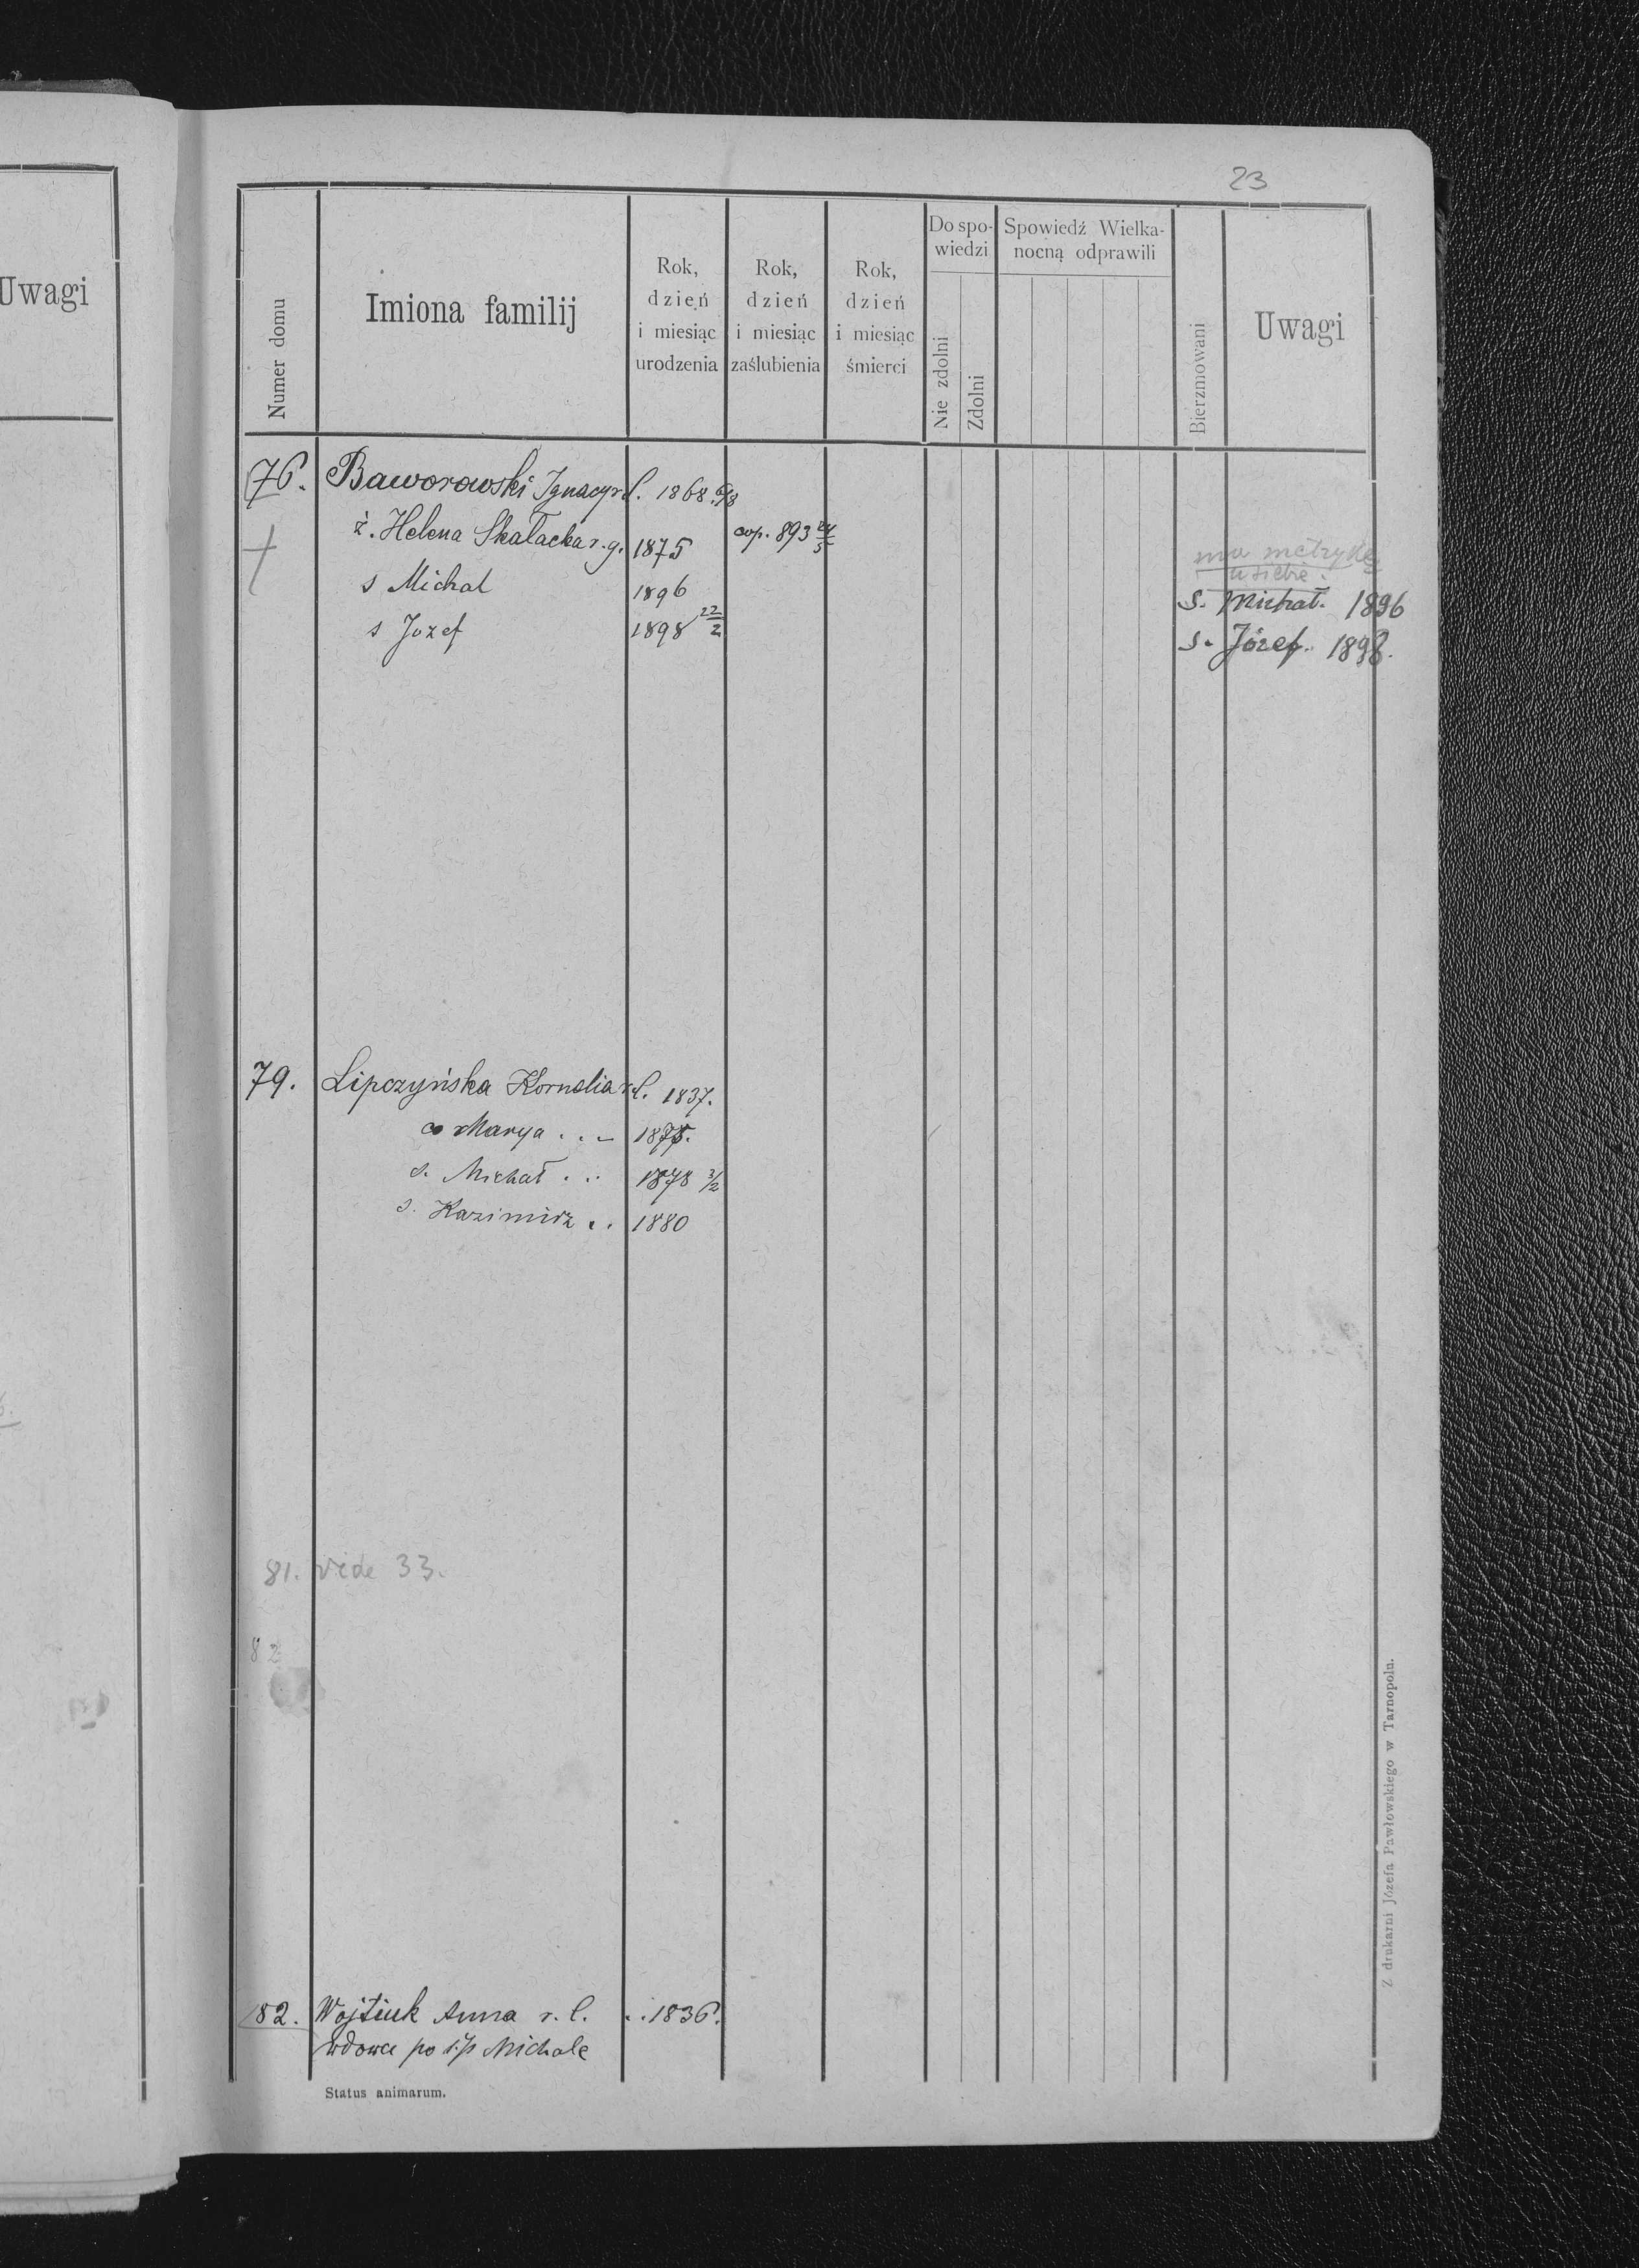 Uwagi
23
Numer domu
Imiona familij
Rok,
dzień
i miesiąc
urodzenia
Rok,
dzień
i miesiąc
zaślubienia
Rok,
dzień
i miesiąc
śmierci
Do spo-
wiedzi
Nie zdolni
Zdolni
Spowiedź Wielka-
nocną odprawili
Bierzmowani
Uwagi
76. Baworowski Ignacy r.l. 1868.
ż. Helena Skałacka r.g. 1875 cop. 893 24/5
ma metrykę
u siebie.
s Michal 1896 s. Michał. 1896
s Jozef 1898 22/2 s. Józef. 1898.
79. Lipczyńska Kornelia r.l. 1837.
c Marya . . – 1875.
s. Michał . . . 1878 3/2
s. Kazimirz . . 1880
81. vide 33.
82
82. Wojtiuk Anna r.l. . . 1836.
wdowa po ś.p Michale
Status animarum.
Z drukarni Józefa Pawłowskiego w Tarnopolu.